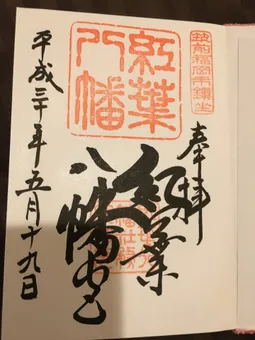 奉拝
筑前福岡市鎮坐
紅葉
八幡
紅葉
八幡宮
平成三十年五月十九日